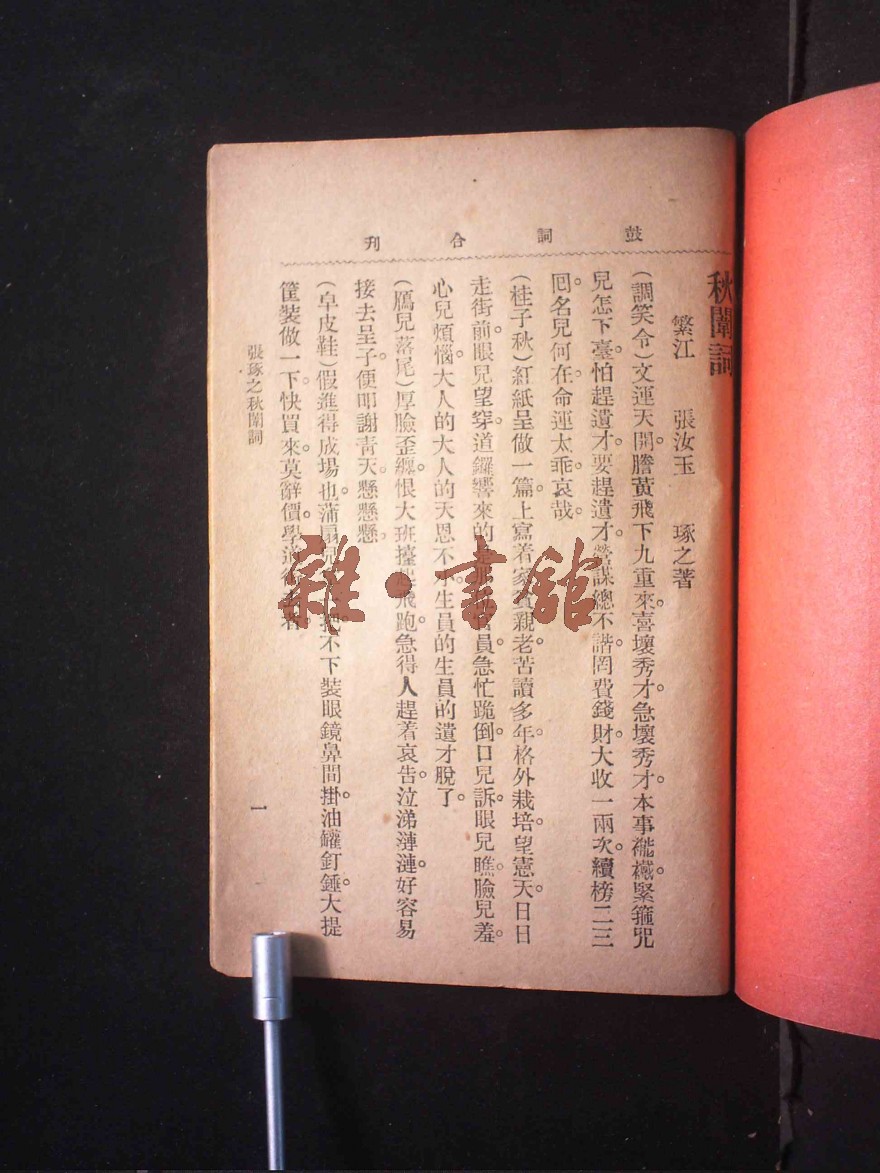 鼓詞合刊
秋闈詞
繁江 張汝玉 琢之著
(調笑令)文運天開。膽黃飛下九重來。喜壞秀才。急壞秀才。本事襤。緊箍咒
兒怎下臺。怕趕遺才。要趕遺才。營謀總不諧。罔費錢財。大收一兩次。續榜二三
回。名兒何在。命運太乖。哀哉。
(桂子秋)紅紙呈做一篇。上寫着家貧親老。苦讀多年。格外栽培。望憲天。日日
走街前。眼兒望穿。道鑼響。來的是員。急忙跪倒。口兒訴。眼兒瞧。臉兒羞。
心兒煩惱。大人的大人的天恩不小。生員的生員的遺才脫了。
(厲兒落尾)厚臉歪纏。恨大班擡飛跑。急得人趕着哀告。泣涕漣漣。好容易
接去呈子。便叩謝青天。懸懸懸。
(皁皮鞋)假進得成場也。蒲扇兒不下。裝眼鏡鼻間掛。油罐釘錘。大提
筐裝做一下。快買來。莫辭價。學
張琢之秋闈詞
一
雜·書館